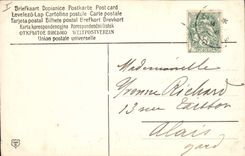 Briefkaart Dopisnice Postkarte Post card
Levelező-Lap Cartolina postale Carte postale
Tarjeta postal Bilhete postal Brefkort Brevkort
Karta korespondencyjna Korespondenční lístek
ОТКРЫТОЕ ПИСЬМО WELTPOSTVEREIN
Union postale universelle
Mademoiselle
Yvonne Richard
13 rue
Alais
Gard